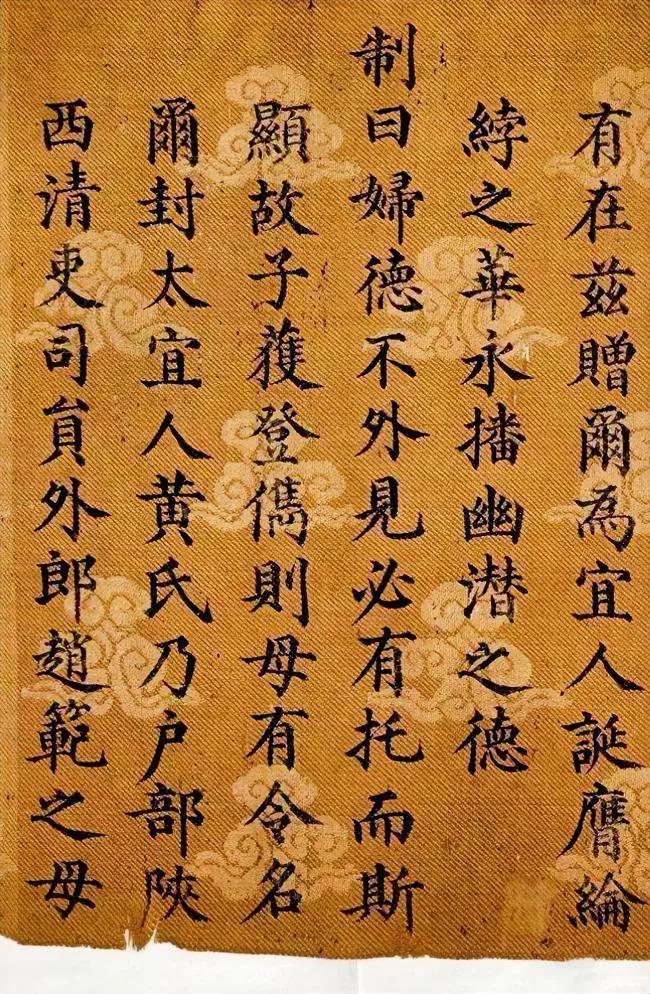 有在兹贈爾為宜人誕膺綸
綍之華永播幽潜之德
制曰婦德不外見必有托而斯
顯故子獲登儁則母有令名
爾封太宜人黄氏乃户部陜
西清吏司貟外郎趙範之母